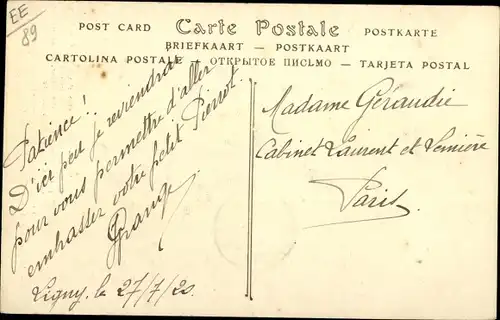 EE
89
POST CARD Carte Postale POSTKARTE
BRIEFKAART — POSTKAART
CARTOLINA POSTALE — ОТКРЫТОЕ ПИСЬМО — TARJETA POSTAL
Patience!!
D'ici peu je reviendrai
pour vous permettre d'aller
embrasser votre petit Pierrot.
Ligny, le 27/7/20
Madame Géraudie
Cabinet Laurent et
Paris